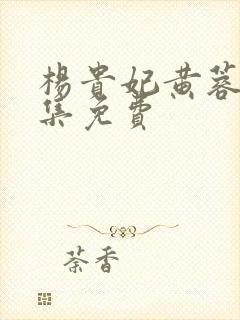 楊貴妃黄蓉
集免費
荼香